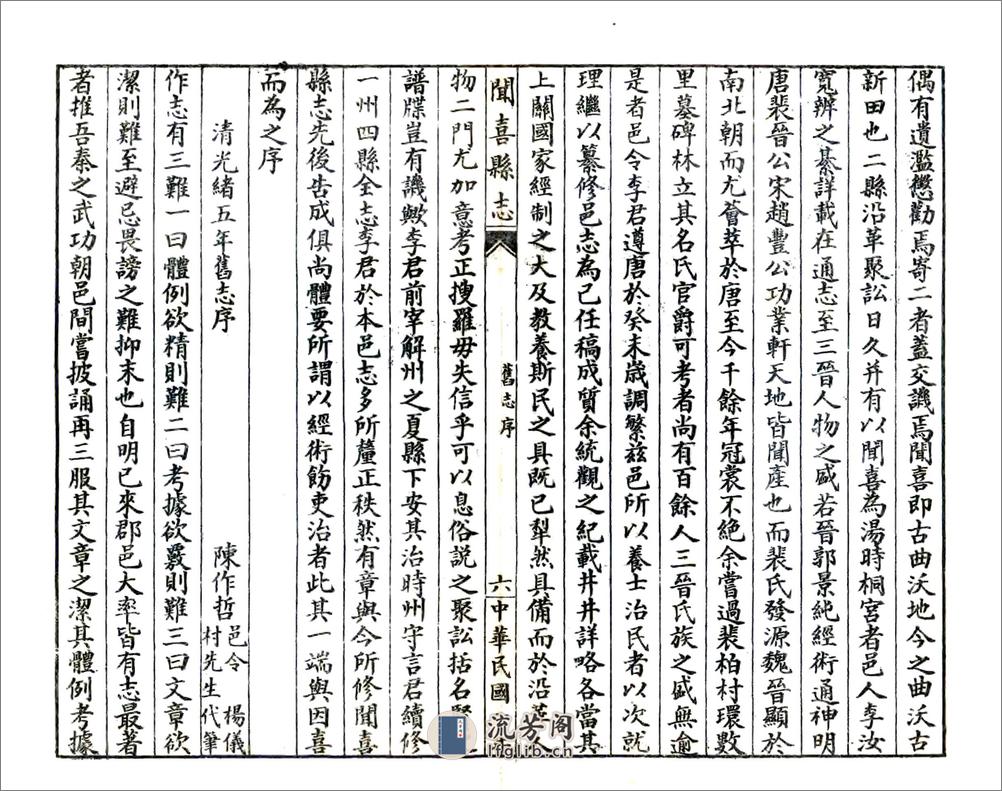 偶有遺濫懲勸焉寄二者蓋交譏焉聞喜即古曲沃地今之曲沃古
新田也二縣沿革聚訟日久并有以聞喜為湯時桐宮者邑人李汝
寬辨之綦詳載在通志至三晉人物之盛若晉郭景純經術通神明
唐裴晉公宋趙豐公功業軒天地皆聞產也而裴氏發源魏晉顯於
南北朝而尤薈萃於唐至今千餘年冠裳不絕余嘗過裴柏村環數
里墓碑林立其名氏官爵可考者尚有百餘人三晉氏族之盛無逾
是者邑令李君遵唐於癸未歲調繁茲邑所以養士治民者以次就
理繼以纂修邑志為己任稿成質余統觀之紀載井井詳略各當其
上關國家經制之大及教養斯民之具既已犁然具備而於沿革人
聞喜縣志
舊志序
六
中華民國
流芳阁
lfglib.cn
物二門尤加意考正搜羅毋失信乎可以息俗說之聚訟括名賢
譜牒豈有譏歟李君前宰解州之夏縣下安其治時州守言君續修
一州四縣全志李君於本邑志多所釐正秩然有章與今所修聞喜
縣志先後告成俱尚體要所謂以經術飭吏治者此其一端與因喜
而為之序
清光緒五年舊志序
陳作哲邑令楊儀村先生代筆
作志有三難一曰體例欲精則難二曰考據欲覈則難三曰文章欲
潔則難至避忌畏謗之難抑末也自明已來郡邑大率皆有志最著
者推吾秦之武功朝邑間嘗披誦再三服其文章之潔其體例考據